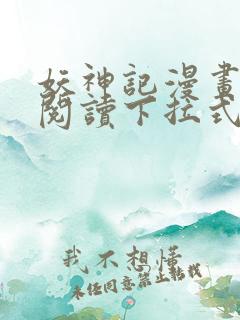 妖神記漫畫
閱讀下拉式
我不想懂
未經同意禁止轉載